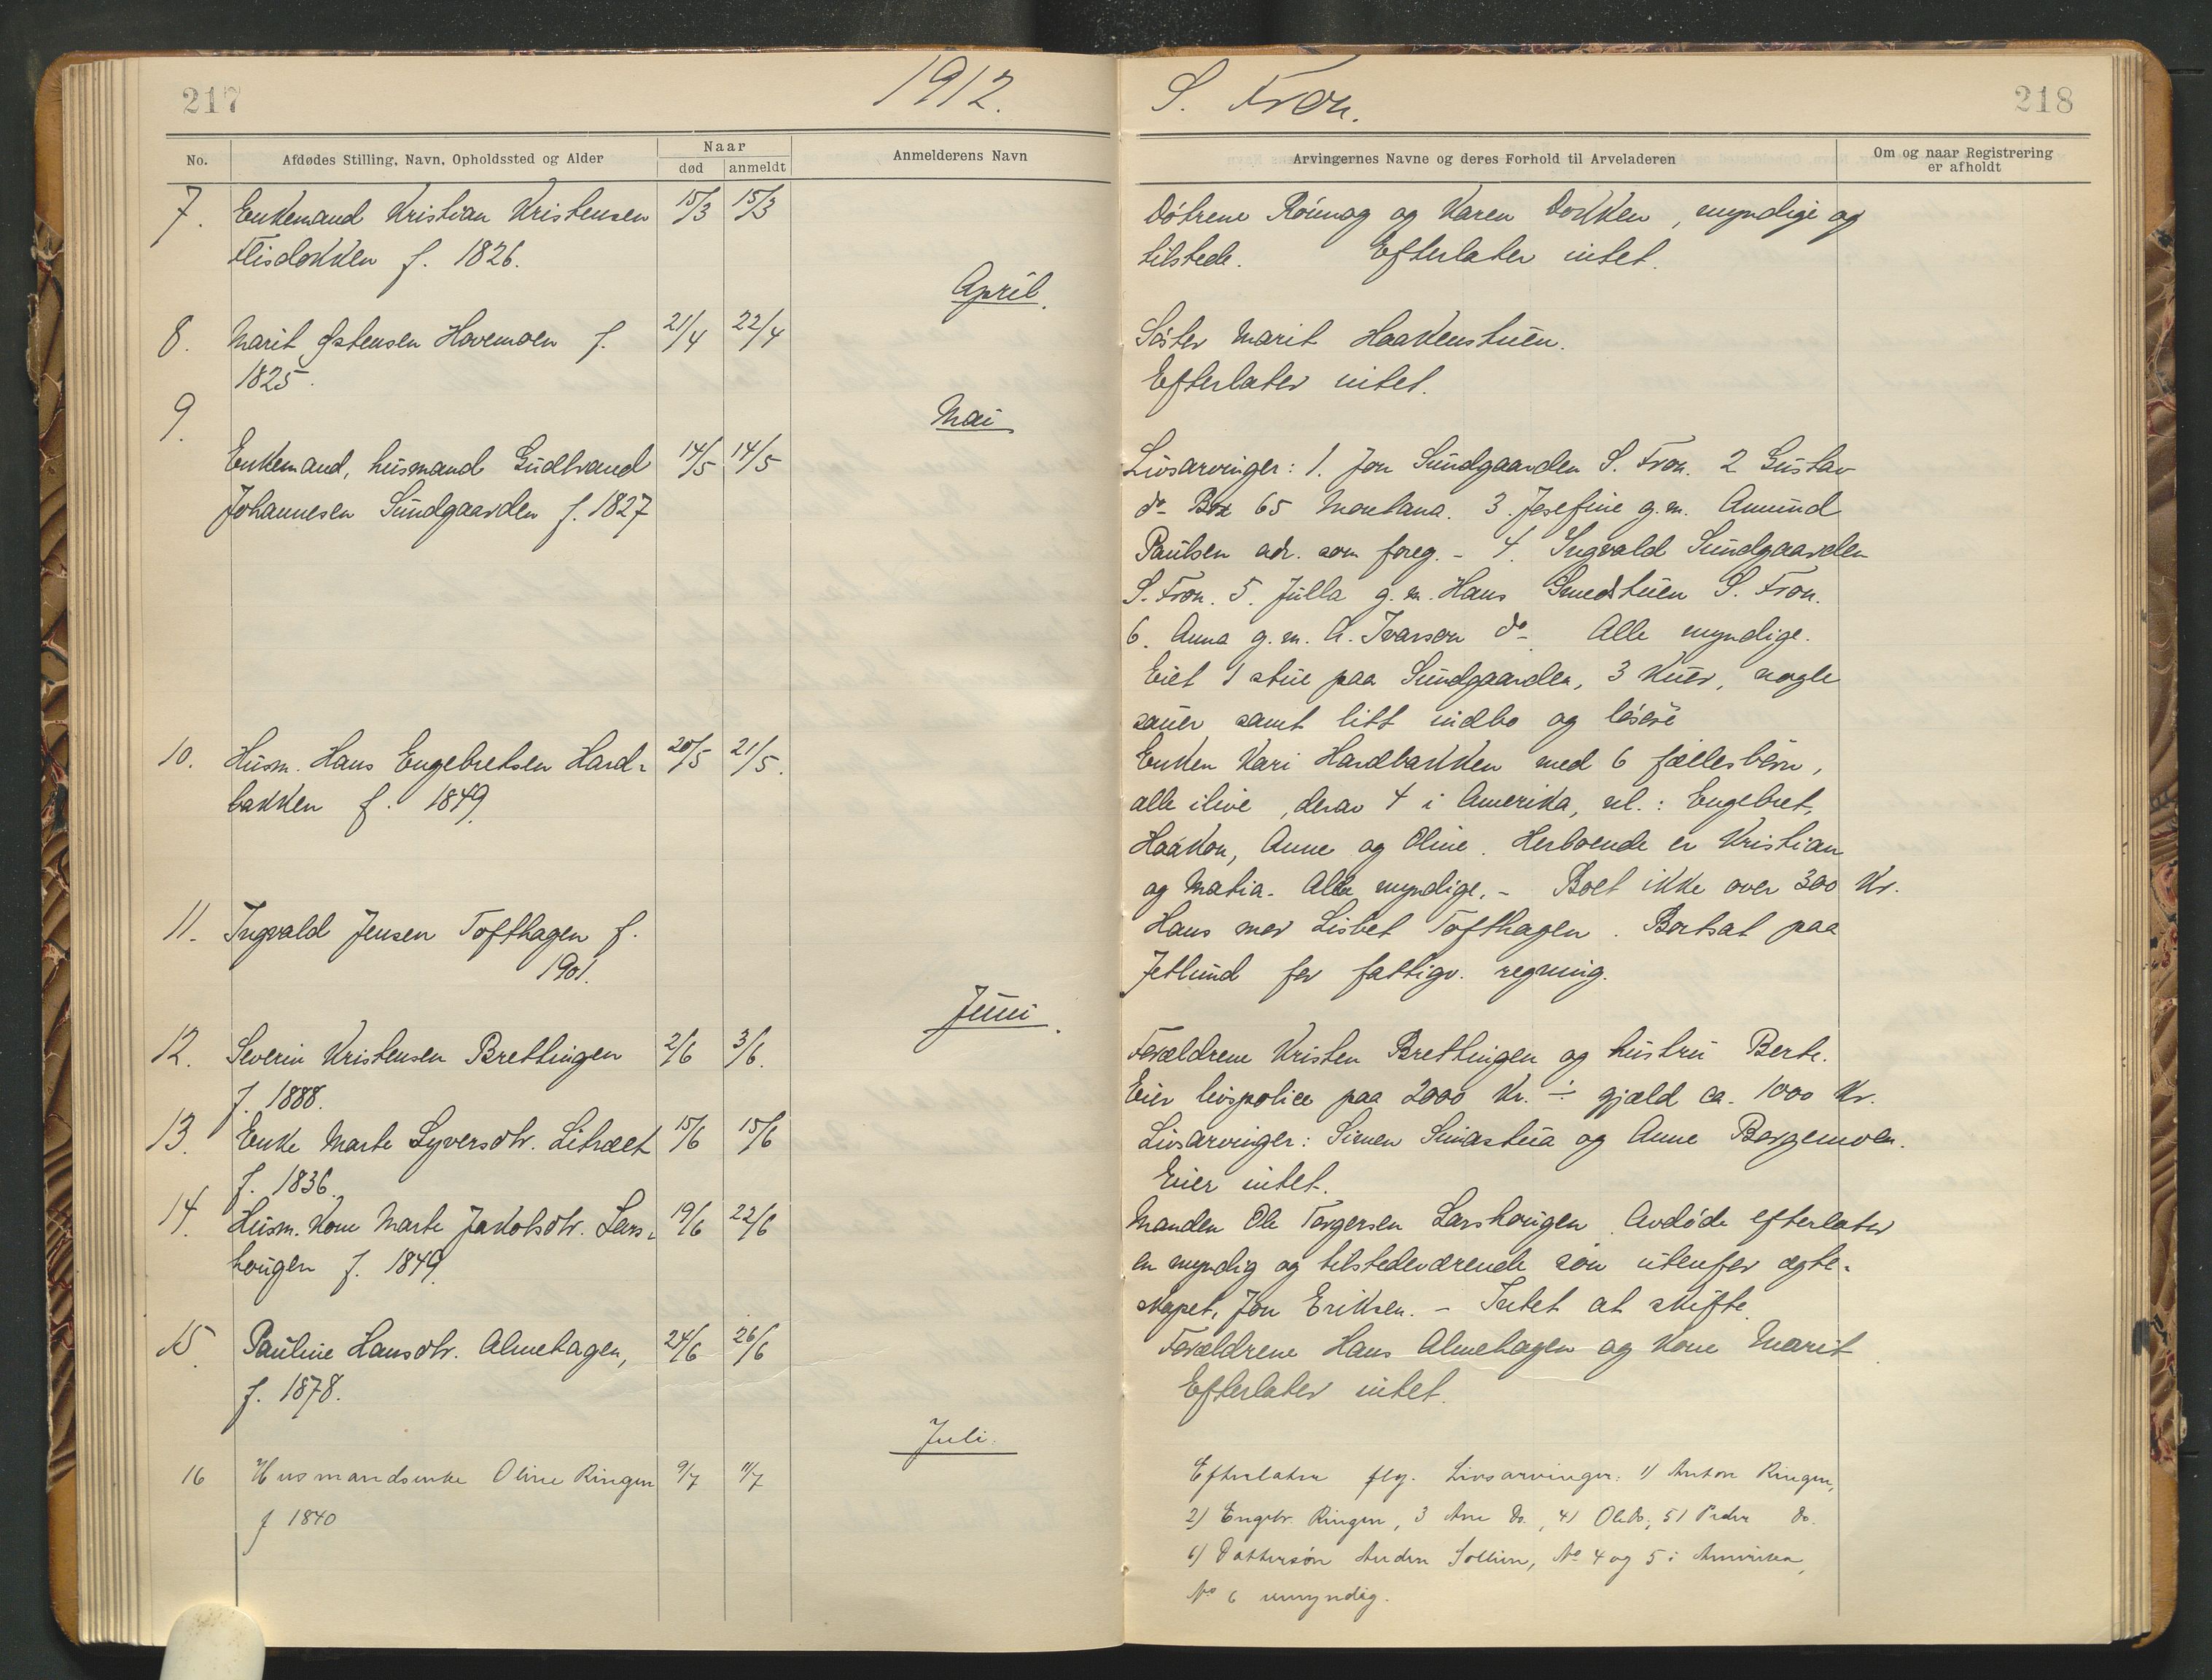 217
1912.
S. Fron.
218
No.
Afdødes Stilling, Navn, Opholdssted og Alder
Naar
død
anmeldt
Anmelderens Navn
Arvingernes Navne og deres Forhold til Arveladeren
Om og naar Registrering
er afholdt
7. Enkemand Kristian Kristensen 15/3 15/3
Flisdokken f. 1826.
Døtrene Rønnog og Karen Dokken, myndige og
tilstede. Efterlater intet.
April.
8. Marit Østensen Hovemoen f. 21/4 22/4
1825.
Søster Marit Haakenstuen.
Efterlater intet.
9.
Mai
Enkemand, husmand Gudbrand 14/5 14/5
Johannesen Sundgaarden f. 1827
Livsarvinger: 1. Jon Sundgaarden S. Fron. 2 Gustav
do Box 65 Montana. 3. Josefine g.m. Amund
Paulsen adr. som foreg. - 4. Ingvald Sundgaarden
S. Fron. 5. Julla g.m. Hans Smedstuen S. Fron.
6. Anna g.m. A. Ivarson do. Alle myndige.
Eiet 1 stue paa Sundgaarden, 3 kuer, nogle
sauer samt litt indbo og løsøre
10. Husm. Hans Engebretsen Hard- 20/5 21/5.
bakken f. 1849.
Enken Kari Hardbakken med 6 fællesbørn,
alle ilive, derav 4 i Amerika, nl.: Engebret,
Haakon, Anne og Oline. Herboende er Kristian
og Matia. Alle myndige. - Boet ikke over 300 Kr.
11. Ingvald Jensen Tofthagen f.
1901.
Hans mor Lisbet Tofthagen. Bortsat paa
Jetlund for fattigv. regning.
Juni.
12. Severin Kristensen Brettingen 2/6 3/6.
f. 1888.
Forældrene Kristen Brettingen og hustru Berte.
Eier livspolice paa 2000 Kr. ÷ gjæld ca. 1000 Kr.
13. Enke Marte Syversdtr. Litræet 15/6 15/6
f. 1836.
Livsarvinger: Simen Simastua og Anne Borgemoen.
Eier intet.
14. Husm. kone Marte Jakobsdtr. Lars- 19/6 22/6
hougen f. 1849.
Manden Ole Torgersen Larshougen. Avdøde efterlater
en myndig og tilstedeværende søn utenfor ægte-
skapet, Jon Eriksen. - Intet at skifte.
15. Pauline Hansdtr. Almehagen, 24/6 26/6
f. 1878.
Forældrene Hans Almehagen og kone Marit.
Efterlater intet.
Juli.
16 Husmandsenke Oline Ringen 9/7 11/7
f 1840
Efterlater flg. Livsarvinger: 1) Anton Ringen,
2) Engebr. Ringen, 3 Ane Do., 4) Ole Do., 5) Peder Do.
6) Dattersøn No 4 og 5 i Amerika,
No 6 umyndig.